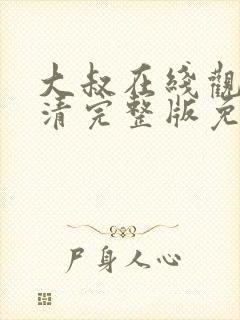 大叔在线觀
清完整版免
尸身人心